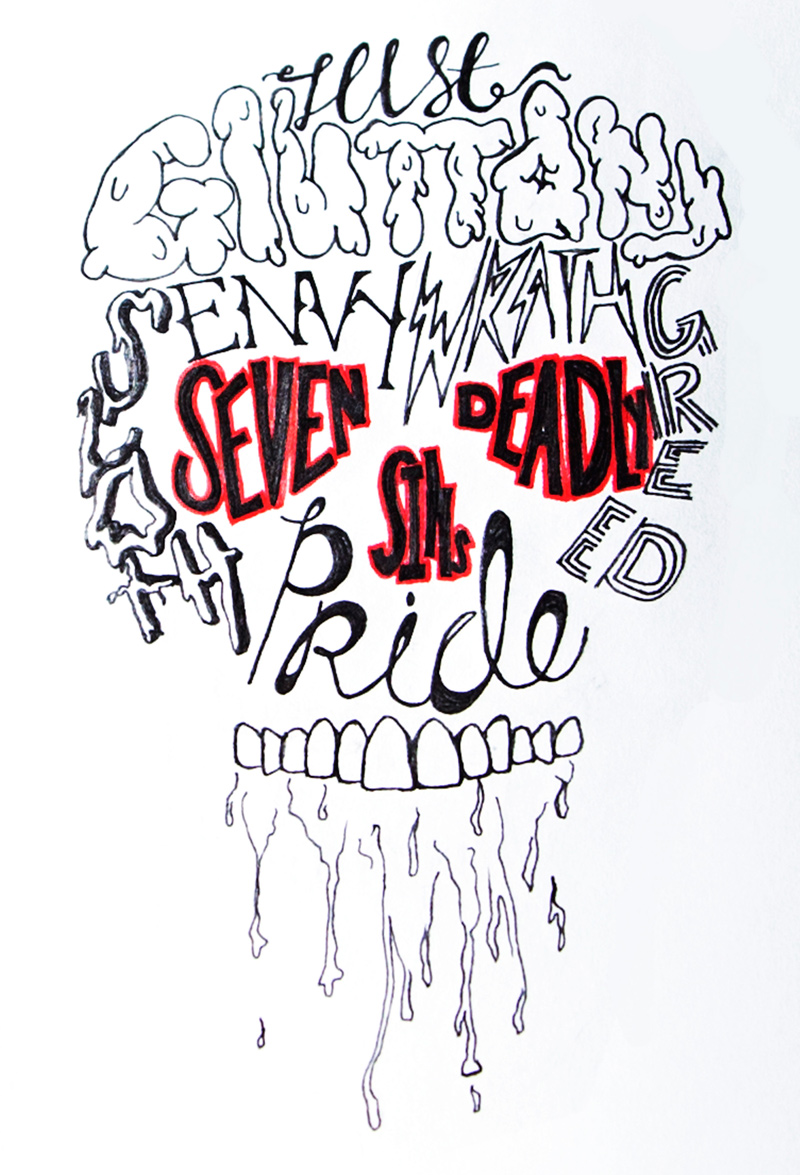 Lust
GluTTONy
ENVY WRATH
SLOTH
GREED
SEVEN DEADLY
SINs
PRide